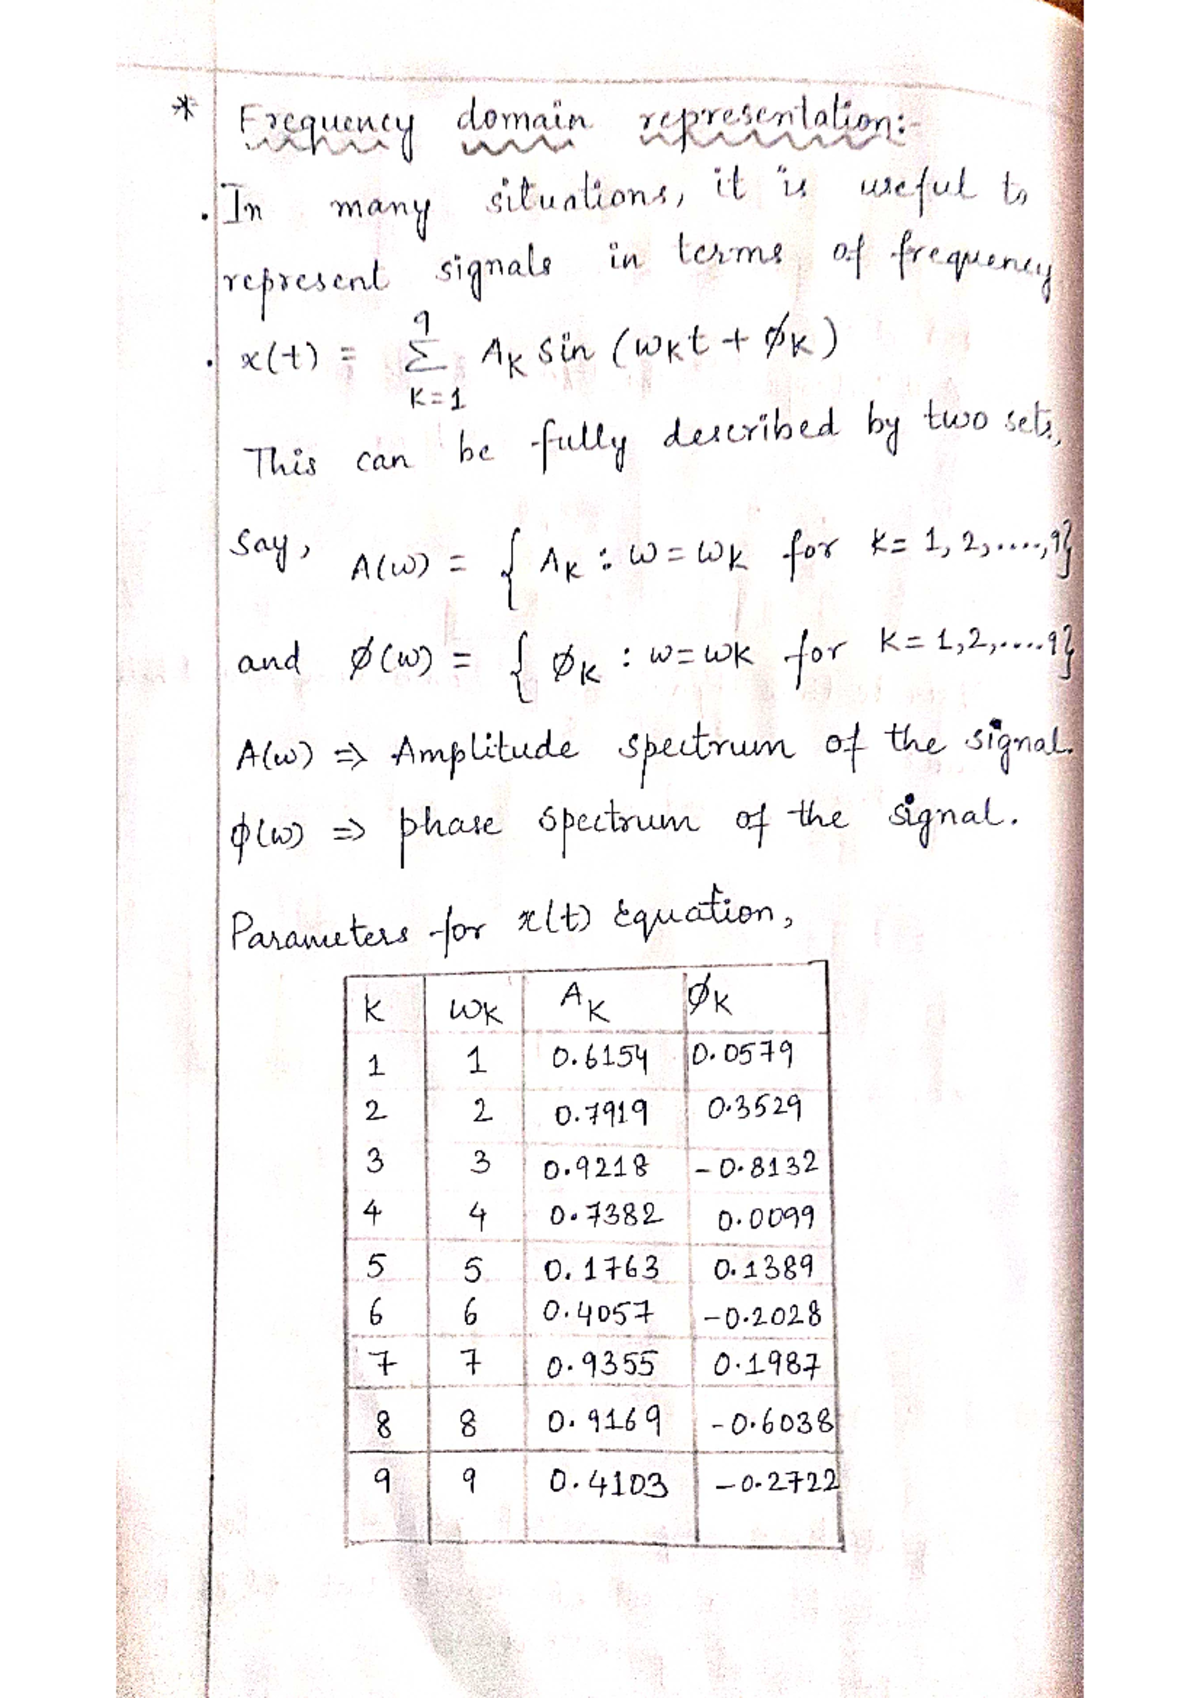 * Frequency domain representation:-
. In many situations, it is useful to
represent signals in terms of frequency
. x(t) = 9 Σ K=1 AK sin (ωKt + ØK)
This can be fully described by two sets,
Say, A(ω) = { AK : ω = ωK for K= 1, 2,....,9}
and Ø(ω) = { ØK : ω=ωK for K= 1,2,....9}
A(ω) => Amplitude spectrum of the signal.
ϕ(ω) => phase spectrum of the signal.
Parameters for x(t) Equation,
K ωK AK ØK
1 1 0.6154 0.0579
2 2 0.7919 0.3529
3 3 0.9218 -0.8132
4 4 0.7382 0.0099
5 5 0.1763 0.1389
6 6 0.4057 -0.2028
7 7 0.9355 0.1987
8 8 0.9169 -0.6038
9 9 0.4103 -0.2722